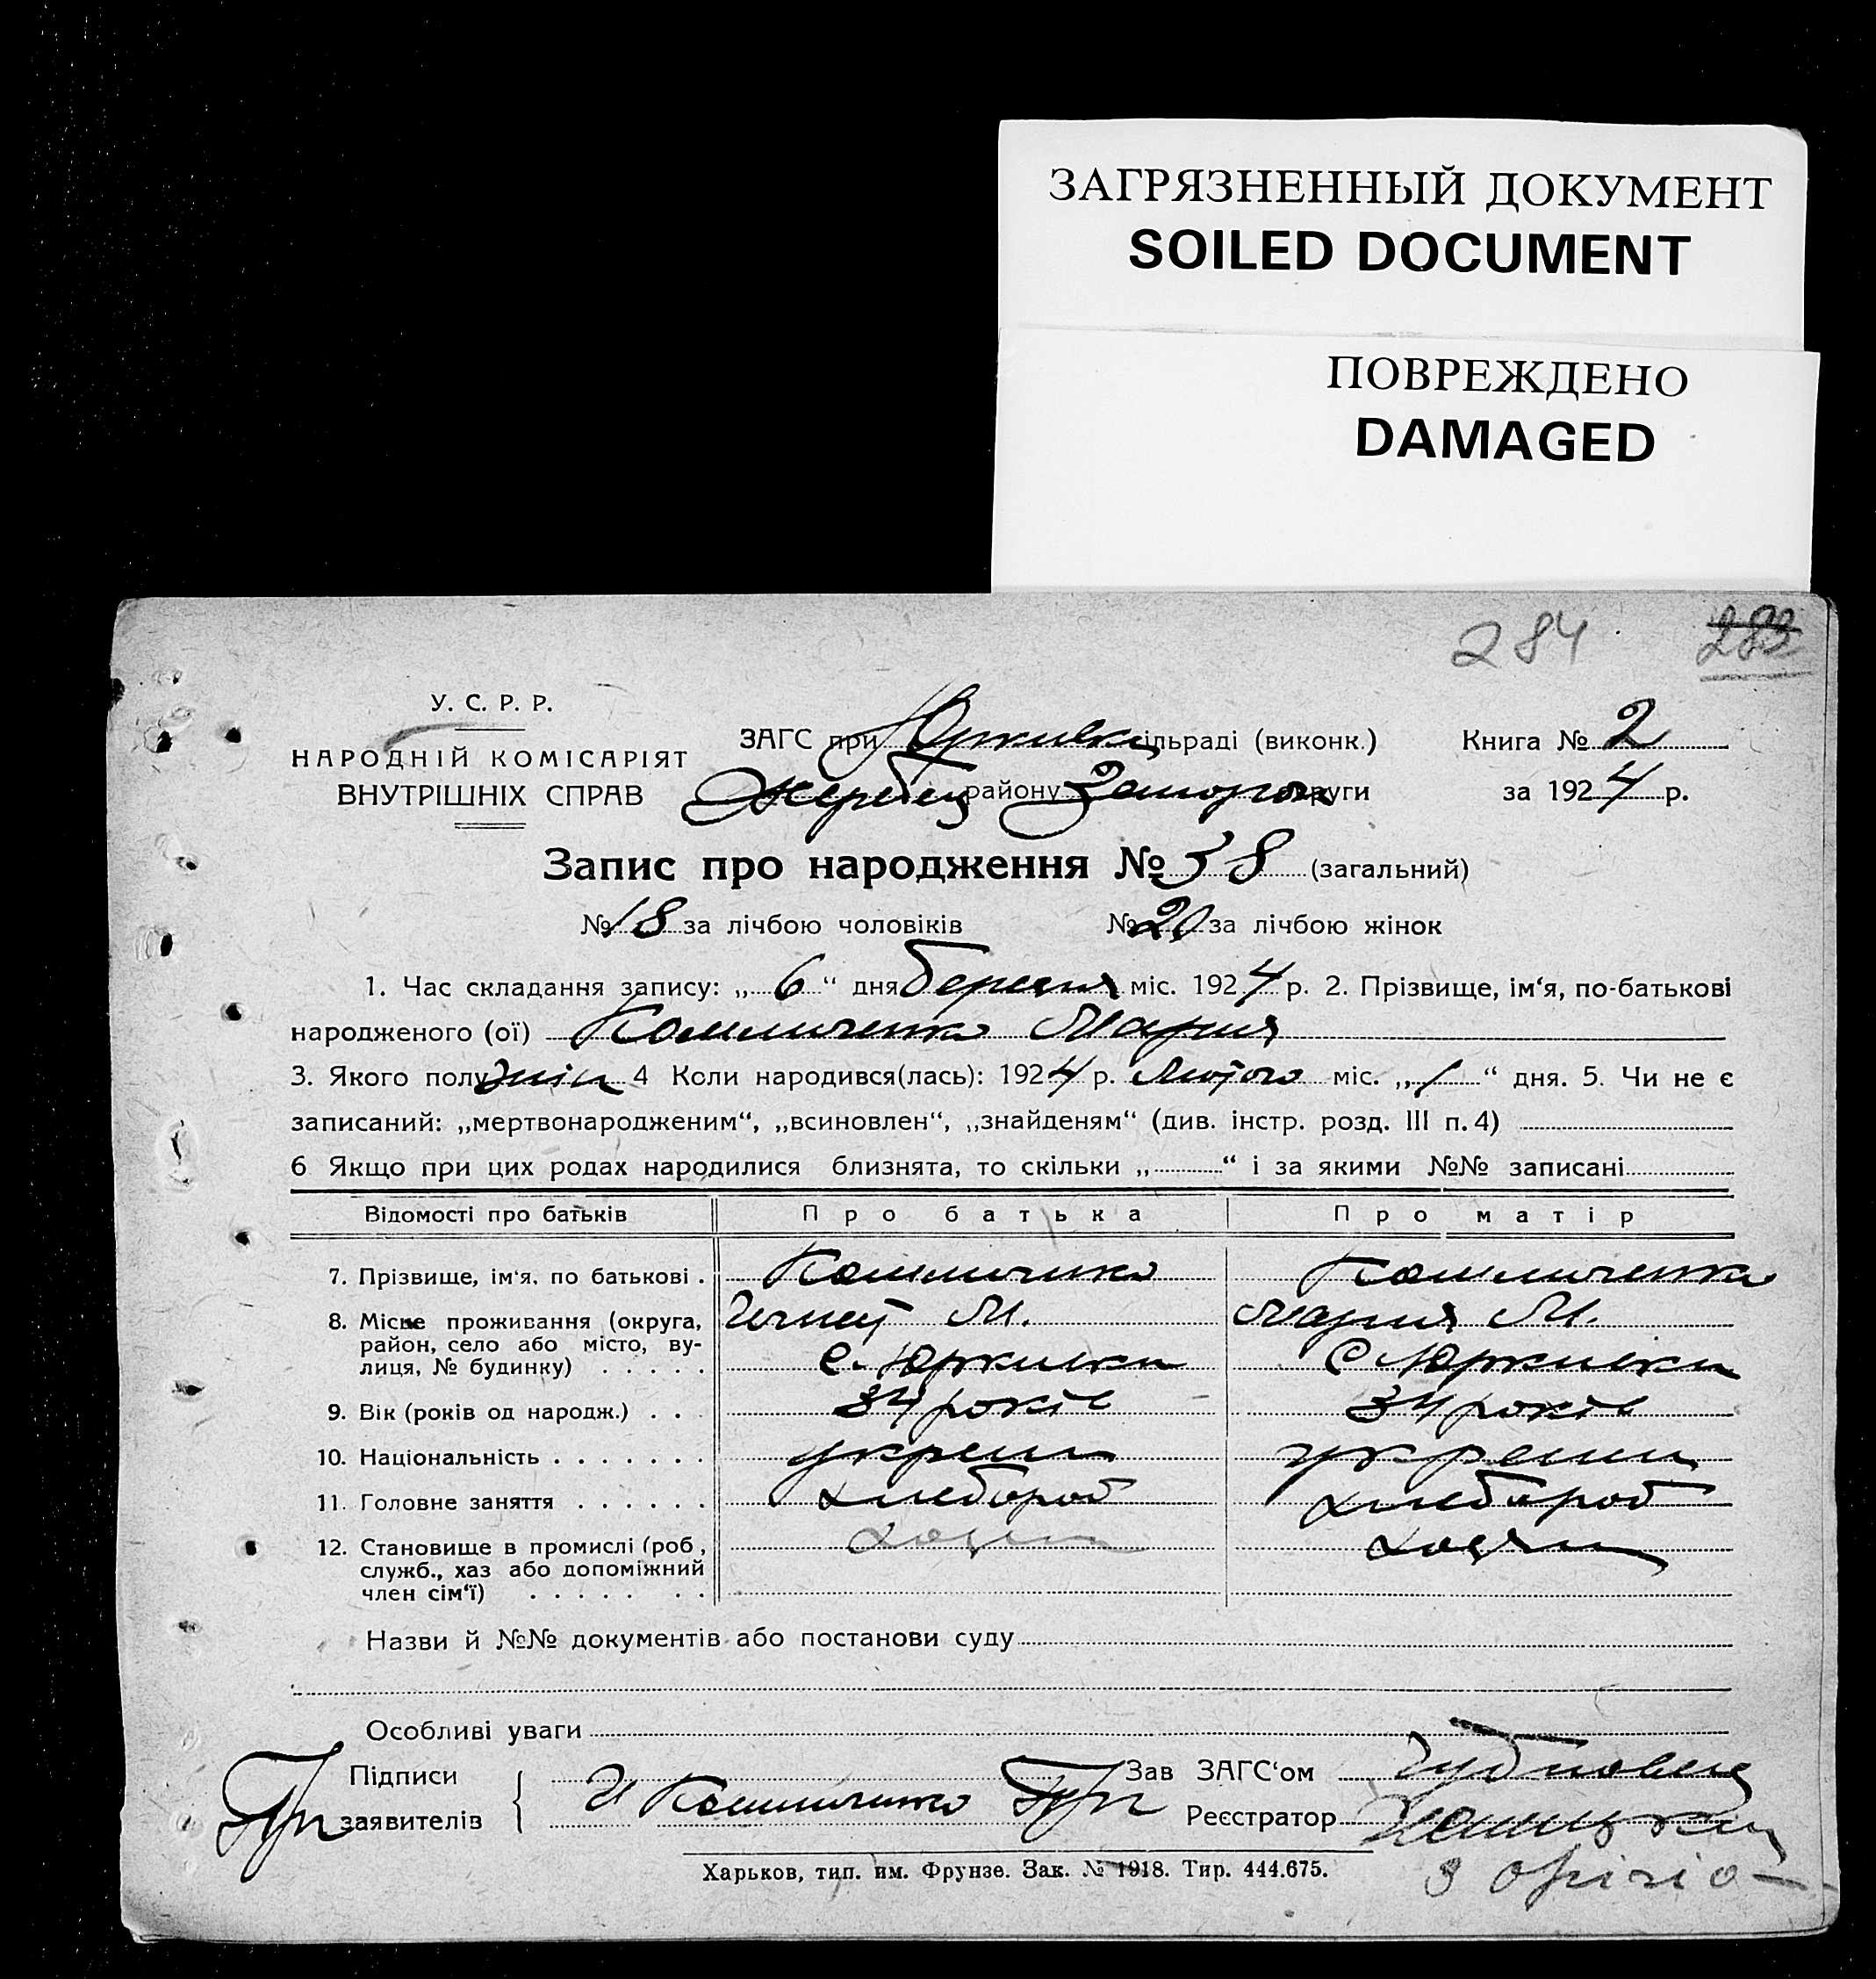 ЗАГРЯЗНЕННЫЙ ДОКУМЕНТ
SOILED DOCUMENT
ПОВРЕЖДЕНО
DAMAGED
284 283
У. С. Р. Р.
НАРОДНІЙ КОМІСАРІЯТ
ВНУТРІШНІХ СПРАВ
ЗАГС при Юркивкс ільраді (виконк.)
Жеребец району Запорож округи
Книга № 2
за 1924 р.
Запис про народження № 38 (загальний)
№ 18 за лічбою чоловіків № 20 за лічбою жінок
1. Час складання запису: „ 6 “ дня березня міс. 1924 р. 2. Прізвище, ім‘я, по-батькові
народженого (ої) Мария
3. Якого полу жін 4 Коли народився(лась): 1924 р. Лютого міс. „ 1 “ дня. 5. Чи не є
записаний: „мертвонародженим“, „всиновлен“, „знайденям“ (див. інстр. розд. III п. 4)
6 Якщо при цих родах народилися близнята, то скільки „ “ і за якими №№ записані
Відомості про батьків Про батька Про матір
7. Прізвище, ім‘я, по батькові .
8. Місце проживання (округа, М. Мария М.
район, село або місто, ву-
лиця, № будинку) . . . . . с. Юркивка с Юркивка
9. Вік (років од народж.) . . . 34 років 34 років
10. Національність . . . . . . . украин украин
11. Головне заняття . . . . . . хлебороб хлебороб
12. Становище в промислі (роб, хозяин хозяин
служб., хаз або допоміжний
член сім‘ї) . . . . . . .
Назви й №№ документів або постанови суду
Особливі уваги
Підписи
заявителів
Зав ЗАГС‘ом
Реєстратор
Харьков, тип. им. Фрунзе. Зак. № 1918. Тир. 444.675.